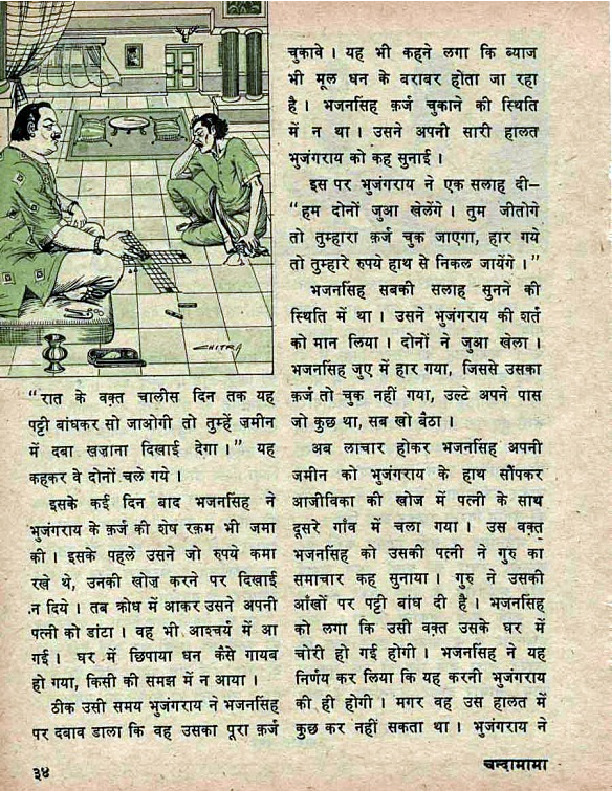 CHITRA
"रात के वक़्त चालीस दिन तक यह
पट्टी बांधकर सो जाओगी तो तुम्हें ज़मीन
में दबा खज़ाना दिखाई देगा ।" यह
कहकर वे दोनों चले गये ।
इसके कई दिन बाद भजनसिंह ने
भुजंगराय के क़र्ज की शेष रक़म भी जमा
की । इसके पहले उसने जो रुपये कमा
रखे थे, उनकी खोज करने पर दिखाई
न दिये । तब क्रोध में आकर उसने अपनी
पत्नी को डांटा । वह भी आश्चर्य में आ
गई । घर में छिपाया धन कैसे गायब
हो गया, किसी की समझ में न आया ।
ठीक उसी समय भुजंगराय ने भजनसिंह
पर दबाव डाला कि वह उसका पूरा क़र्ज
चुकावे । यह भी कहने लगा कि ब्याज
भी मूल धन के बराबर होता जा रहा
है । भजनसिंह क़र्ज चुकाने की स्थिति
में न था । उसने अपनी सारी हालत
भुजंगराय को कह सुनाई ।
इस पर भुजंगराय ने एक सलाह दी–
"हम दोनों जुआ खेलेंगे । तुम जीतोगे
तो तुम्हारा क़र्ज चुक जाएगा, हार गये
तो तुम्हारे रुपये हाथ से निकल जायेंगे ।"
भजनसिंह सबकी सलाह सुनने की
स्थिति में था । उसने भुजंगराय की शर्त
को मान लिया । दोनों ने जुआ खेला ।
भजनसिंह जुए में हार गया, जिससे उसका
क़र्ज तो चुक नहीं गया, उल्टे अपने पास
जो कुछ था, सब खो बैठा ।
अब लाचार होकर भजनसिंह अपनी
ज़मीन को भुजंगराय के हाथ सौंपकर
आजीविका की खोज में पत्नी के साथ
दूसरे गाँव में चला गया । उस वक़्त
भजनसिंह को उसकी पत्नी ने गुरु का
समाचार कह सुनाया । गुरु ने उसकी
आँखों पर पट्टी बांध दी है । भजनसिंह
को लगा कि उसी वक़्त उसके घर में
चोरी हो गई होगी । भजनसिंह ने यह
निर्णय कर लिया कि यह करनी भुजंगराय
की ही होगी । मगर वह उस हालत में
कुछ कर नहीं सकता था । भुजंगराय ने
३४
चन्दामामा